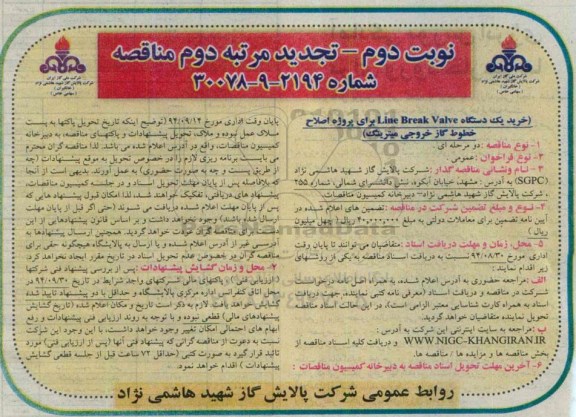 نوبت دوم – تجدید مرتبه دوم مناقصه
شماره ۲۱۹۴-۹-۳۰۰۷۸
(خرید یک دستگاه Line Break Valve برای پروژه اصلاح
خطوط گاز خروجی میترینگ)
۱- نوع مناقصه : دو مرحله ای.
۲- نوع فراخوان : عمومی
۳- نام ونشانی مناقصه گذار : شرکت پالایش گاز شهید هاشمی نژاد
(SGPC) به آدرس : مشهد، خیابان آبکوه، نبش دانشسرای شمالی، شماره ۲۵۵
شرکت پالایش گاز شهید هاشمی نژاد- دبیرخانه کمیسیون مناقصات
۴- نوع و مبلغ تضمین شرکت در مناقصه : تضمین های اعلام شده در
آیین نامه تضمین برای معاملات دولتی به مبلغ ۴۰,۰۰۰,۰۰۰ ریال (چهل میلیون
ریال )
۵- محل، زمان و مهلت دریافت اسناد : متقاضیان می توانند تا پایان وقت
اداری مورخ ۹۴/۰۸/۳۰ نسبت به دریافت اسناد مناقصه به یکی از روشهای
زیر اقدام نمایند :
الف: مراجعه حضوری به آدرس اعلام شده، به همراه اصل نامه درخواست
شرکت در مناقصه و دریافت اسناد (معرفی نامه کتبی نماینده، جهت دریافت
اسناد به همراه کارت شناسایی معتبر الزامی است)، در این حالت اسناد مناقصه
تحویل نماینده متقاضیان خواهد گردید.
ب : مراجعه به سایت اینترنتی این شرکت به آدرس :
WWW.NIGC-KHANGIRAN.IR و دریافت کلیه اسناد مناقصه از
بخش مناقصه ها و مزایده ها / مناقصه ها.
۶- آخرین مهلت تحویل اسناد مناقصه به دبیرخانه کمیسیون مناقصات :
پایان وقت اداری مورخ ۹۴/۰۹/۱۴ (توضیح اینکه تاریخ تحویل پاکتها به پست
ملاک عمل نبوده و ملاک، تحویل پیشنهادات و پاکتهای مناقصه، به دبیرخانه
کمیسیون مناقصات، واقع در آدرس اعلام شده می باشد. لذا مناقصه گران محترم
می بایست برنامه ریزی لازم را در خصوص تحویل به موقع پیشنهادات (چه
از طریق پست و چه به صورت حضوری) به عمل آورند. بدیهی است از آنجا
که بلافاصله پس از پایان مهلت تحویل اسناد و در جلسه کمیسیون مناقصات،
پیشنهاد های دریافتی، تفکیک خواهد شد، لذا امکان قبول پیشنهاد هایی که
پس از پایان مهلت اعلام شده، دریافت می شوند (حتی اگر قبل از پایان مهلت
ارسال شده باشند) وجود نخواهد داشت و بر اساس قانون پیشنهادهایی از این
دست برگشت داده خواهند گردید. همچنین ارسال پیشنهادها به
آدرسی غیر از آدرس اعلام شده و یا ارسال به پالایشگاه هیچگونه حقی برای
مناقصه گران در خصوص عدم تحویل اسناد در تاریخ مقرر ایجاد نخواهد کرد.
۷- محل و زمان گشایش پیشنهادات : پس از بررسی پیشنهاد فنی شرکتها
(ارزیابی فنی)، پاکتهای مالی شرکتهای واجد شرایط در تاریخ ۹۴/۰۹/۳۰ در
محل اتاق کنفرانس اداره مرکزی پالایشگاه و حداقل با دو پیشنهاد تایید شده
گشایش خواهد یافت. لازم به ذکر است تاریخ و مکان اعلام شده (تاریخ گشایش
پیشنهادهای مالی) قطعی نبوده و با توجه به روند ارزیابی فنی پیشنهادات و رفع
ابهام های احتمالی امکان تغییر وجود خواهد داشت، با این وجود این شرکت
نسبت به دعوت از مناقصه گرانی که پیشنهاد فنی آنها (پس از ارزیابی فنی) مورد
تائید قرار گیرد به صورت کتبی (حداقل ۷۲ ساعت قبل از جلسه قطعی گشایش
پیشنهادات ) اقدام خواهد نمود.
روابط عمومی شرکت پالایش گاز شهید هاشمی نژاد